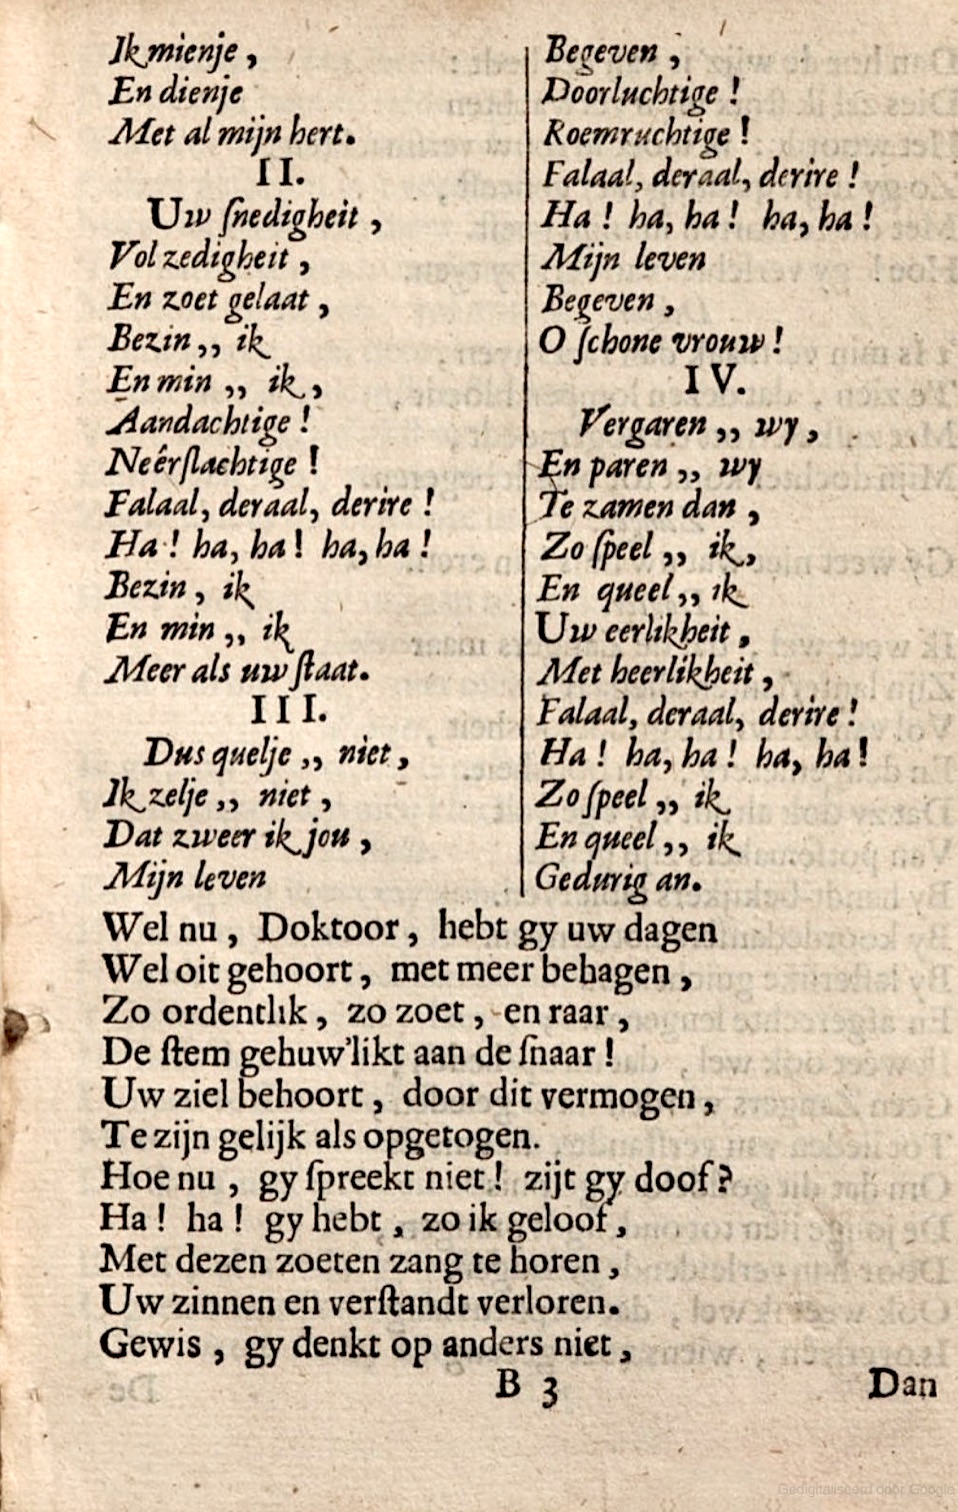 Ik mienje,
En dienje
Met al mijn hert.
II.
Uw ſnedigheit,
Vol zedigheit,
En zoet gelaat,
Bezin,, ik
En min,, ik,
Aandachtige!
Neêrſlachtige!
Falaal, deraal, derire!
Ha! ha, ha! ha, ha!
Bezin, ik
En min,, ik
Meer als uw ſtaat.
III.
Dus quelje,, niet,
Ik zelje,, niet,
Dat zweer ik jou,
Mijn leven
Begeven,
Doorluchtige!
Roemruchtige!
Falaal, deraal, derire!
Ha! ha, ha! ha, ha!
Mijn leven
Begeven,
O ſchone vrouw!
IV.
Vergaren,, wy,
En paren,, wy
Te zamen dan,
Zo ſpeel,, ik,
En queel,, ik
Uw eerlikheit,
Met heerlikheit,
Falaal, deraal, derire!
Ha! ha, ha! ha, ha!
Zo ſpeel,, ik
En queel,, ik
Gedurig an.
Wel nu, Doktoor, hebt gy uw dagen
Wel oit gehoort, met meer behagen,
Zo ordentlik, zo zoet, en raar,
De ſtem gehuw'likt aan de ſnaar!
Uw ziel behoort, door dit vermogen,
Te zijn gelijk als opgetogen.
Hoe nu, gy ſpreekt niet! zijt gy doof?
Ha! ha! gy hebt, zo ik geloof,
Met dezen zoeten zang te horen,
Uw zinnen en verſtandt verloren.
Gewis, gy denkt op anders niet,
B 3 Dan
Gedigitaliseerd door Google